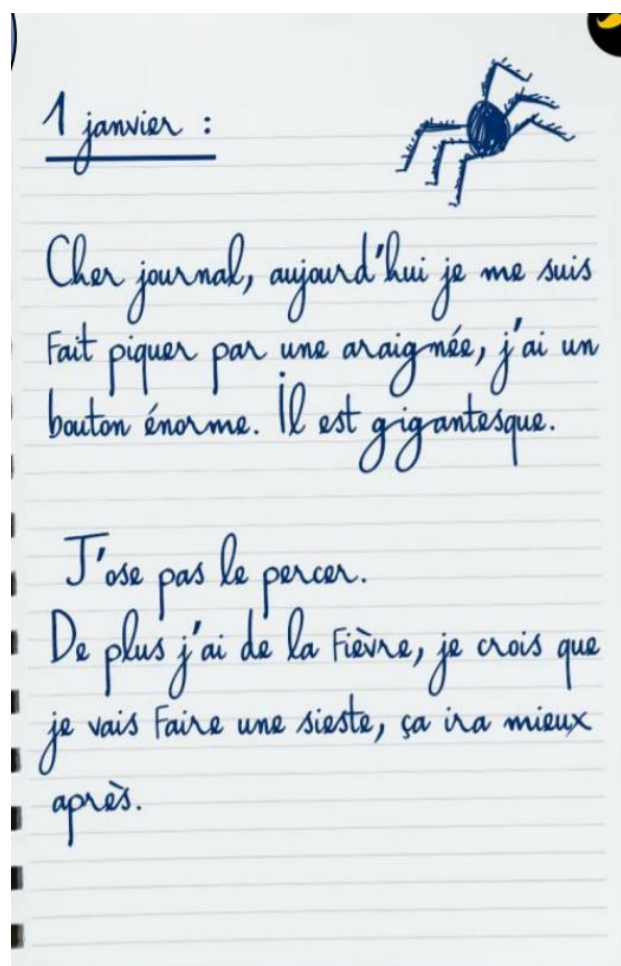 1 janvier :
Cher journal, aujourd'hui je me suis
Fait piquer par une araignée, j'ai un
bouton énorme. Il est gigantesque.
J'ose pas le percer.
De plus j'ai de la Fièvre, je crois que
je vais Faire une sieste, ça ira mieux
après.